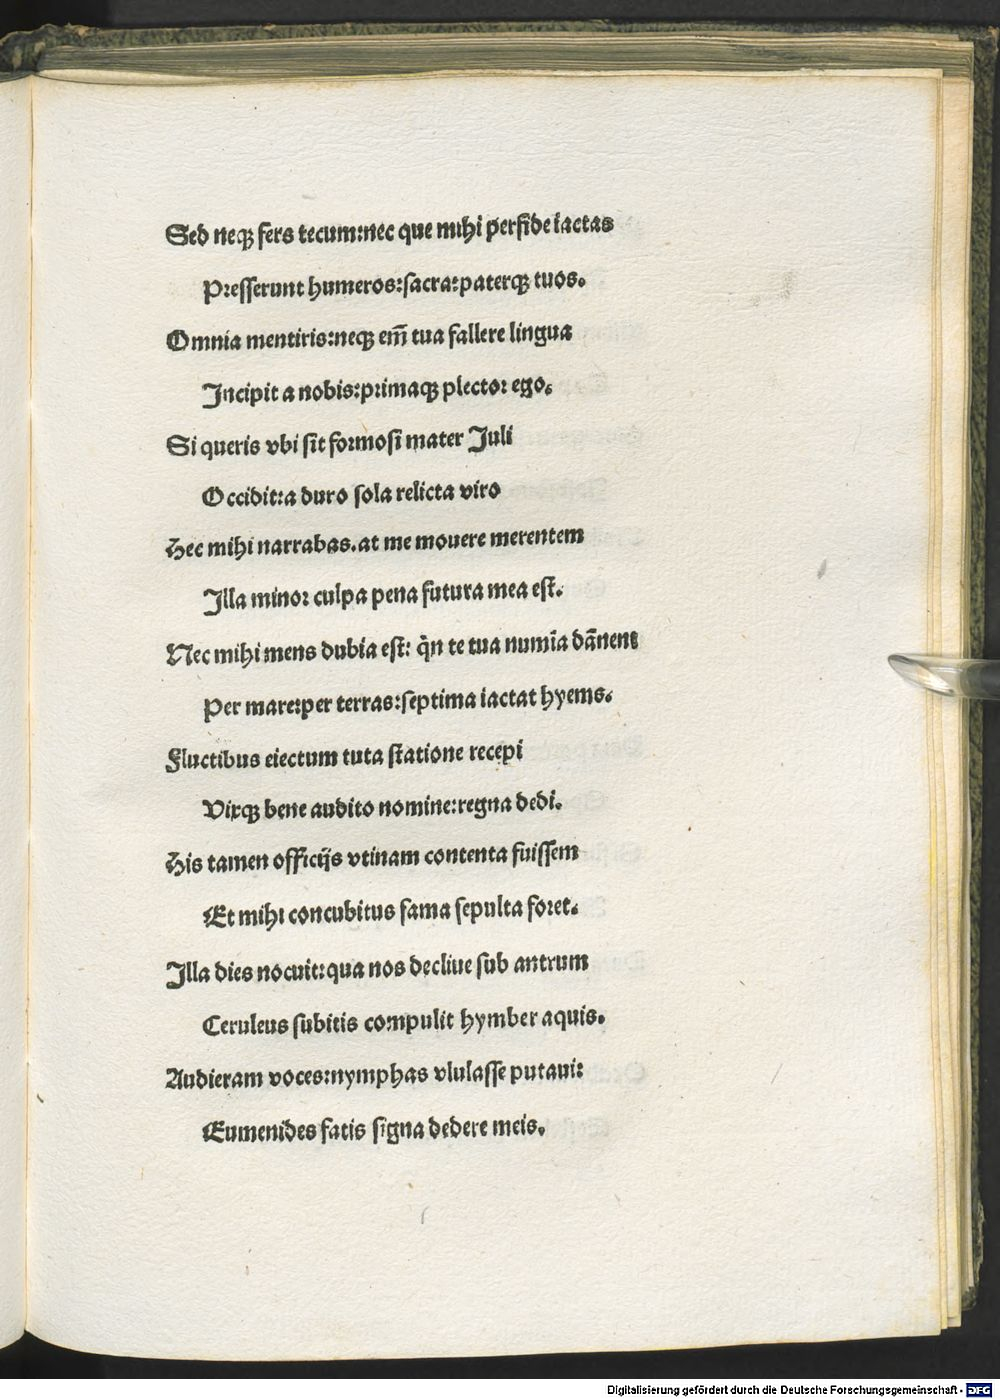 Sed neqꝫ fers tecum:nec que mihi perfide iactas
Presserunt humeros:sacra:paterqꝫ tuos.
Omnia mentiris:neqꝫ em̄ tua fallere lingua
Incipit a nobis:primaqꝫ plector ego.
Si queris vbi sit formosi mater Juli
Occidit:a duro sola relicta viro
Hec mihi narrabas.at me mouere merentem
Illa minor culpa pena futura mea est.
Nec mihi mens dubia est: q̄n te tua numīa dānent
Per mare:per terras:septima iactat hyems.
Fluctibus eiectum tuta statione recepi
Vixqꝫ bene audito nomine:regna dedi.
His tamen officijs vtinam contenta fuissem
Et mihi concubitus fama sepulta foret.
Illa dies nocuit:qua nos decliue sub antrum
Ceruleus subitis compulit hymber aquis.
Audieram voces:nymphas vlulasse putaui:
Eumenides fatis signa dedere meis.
Digitalisierung gefördert durch die Deutsche Forschungsgemeinschaft - DFG